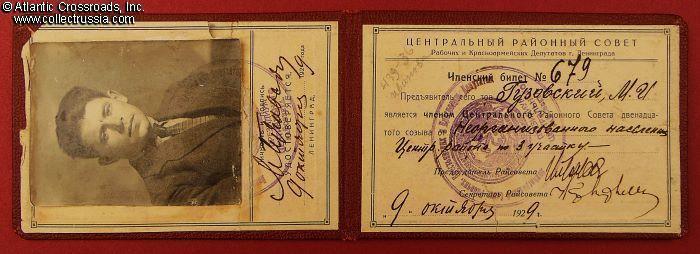 © Atlantic Crossroads, Inc.
www.collectrussia.com
личность и подпись
УДОСТОВЕРЯЕТСЯ.
9 октября 1929 года
ЛЕНИНГРАД.
ЦЕНТРАЛЬНЫЙ РАЙОННЫЙ СОВЕТ
Рабочих и Красноармейских Депутатов г. Ленинграда
Членский билет № 679
Предъявитель сего тов. Гузовский, М. И
является членом Центрального Районного Совета двенадца-
того созыва от Неорганизованного населения
Центр. района по 3 участку
Председатель Райсовета
Секретарь Райсовета
" 9 " октября 1929 г.